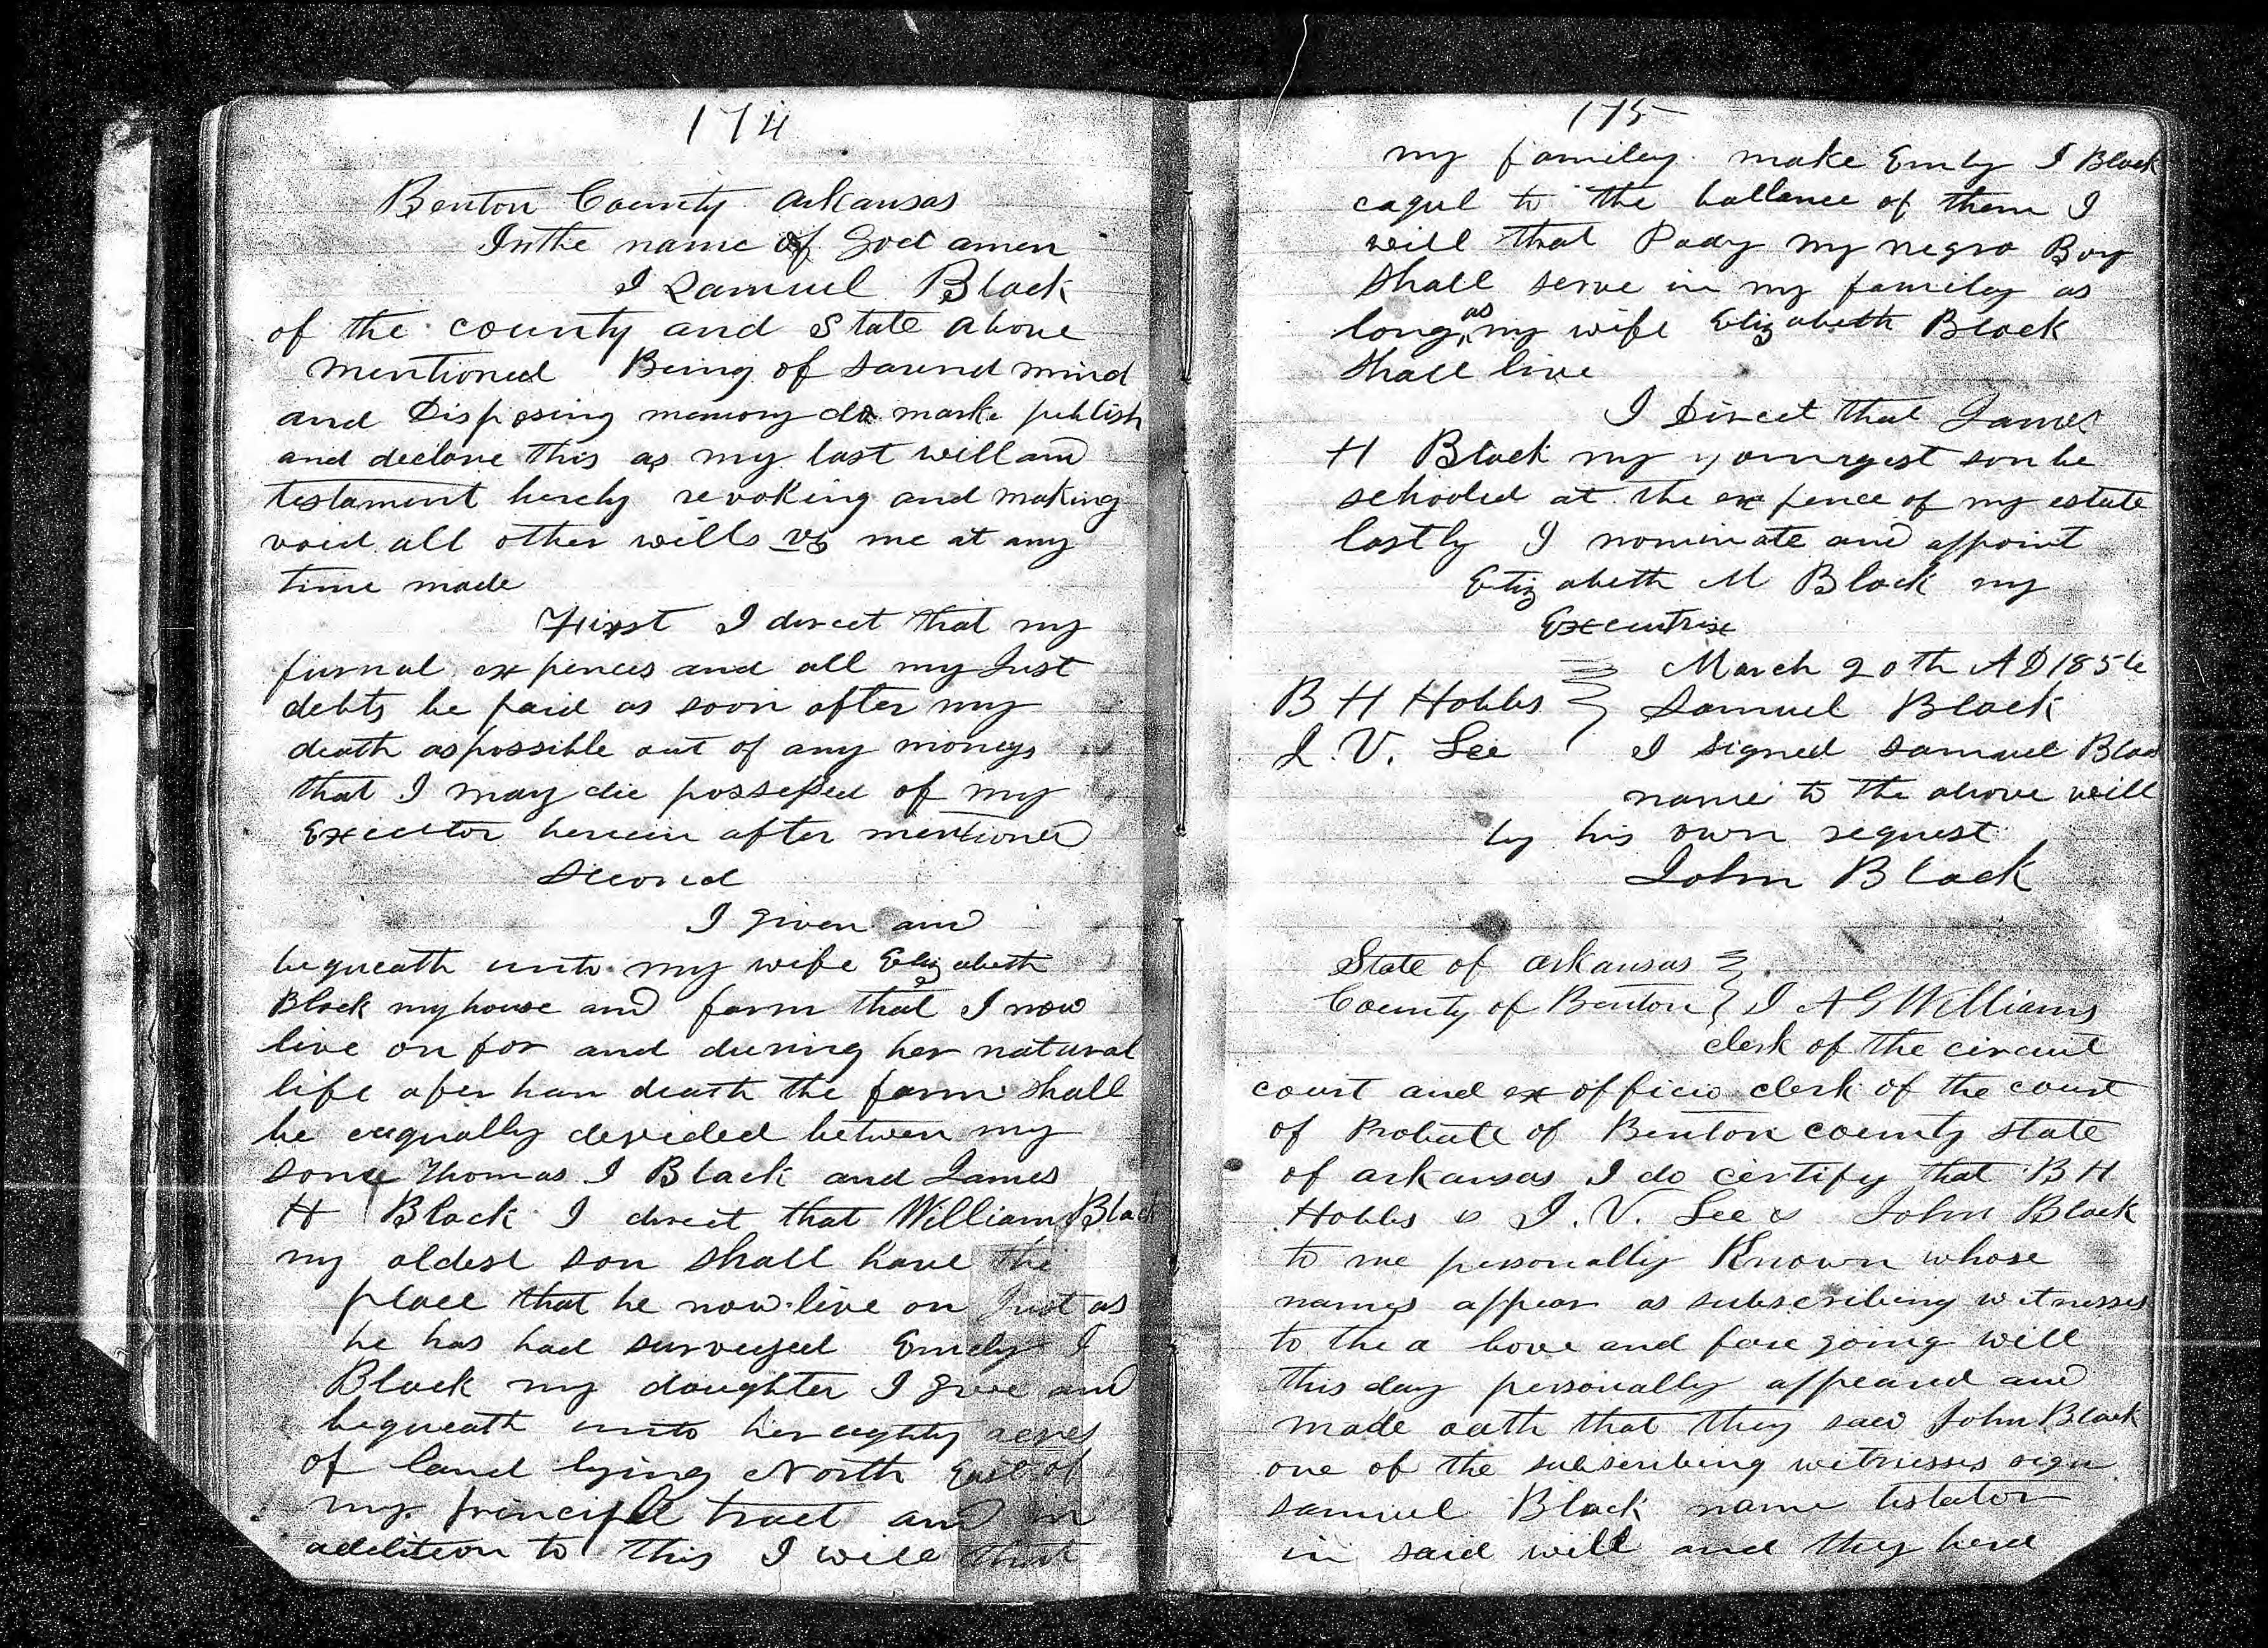 174
Benton County Arkansas
In the name of God amen
I Samuel Black
of the county and State above
mentioned Being of sound mind
and Disposing memory do make publish
and declare this as my last will and
testament hereby revoking and making
void all other wills by me at any
time made
First I direct that my
furnal expences and all my Just
debts be paid as soon after my
death as possible out of any moneys
that I may die possessed of my
Executor herein after mentioned
Second
I given and
bequeath unto my wife Elizabeth
Black my house and farm that I now
live on for and during her natural
life after her death the farm shall
be euqually devided betwen my
sons Thomas J Black and James
H Black I direct that William Black
my oldest son shall have the
place that he now live on Just as
he has had surveyed Emely J
Black my daughter I give and
bequeath unto her eighty acres
of land lying North East of
my principle tract and in
addition to this I will that
175
my familey make Emily J Black
eaqul to the ballance of them I
will that Pady my negro Boy
shall serve in my familey as
long as my wife Elizabeth Black
shall live
I Direct that James
H Black my youngest son be
schooled at the expence of my estate
lastly I nominate and appoint
Elizabeth M Black my
Executrix
March 20th AD 1856
B H Hobbs Samuel Black
J. V. Lee I signed Samuel Blac
name to the above will
by his own request
John Black
State of Arkansas
County of Benton I A G Williams
clerk of the circuit
court and ex officio clerk of the court
of Probate of Benton county state
of arkansas I do certify that B H
Hobbs & J. V. Lee & John Black
to me personally Known whose
names appear as subscribing witnesses
to the a bove and fore going will
this day personally appeared and
made oath that they saw John Black
one of the subscribing witnesses sign
samuel Black name testator
in said will and they herd